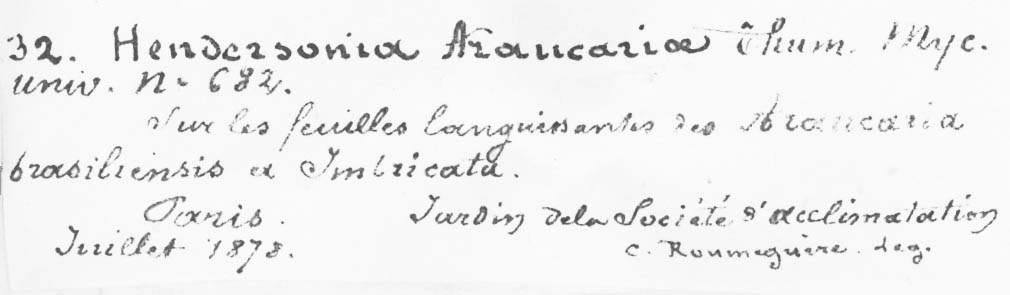 32. Hendersonia Araucariæ Thum. Myc.
univ. N. 682.
Sur les feuilles languissantes des Araucaria
brasiliensis et Imbricata.
Paris. Jardin de la Société d'acclimatation
Juillet 1878. C. Roumeguère. leg.